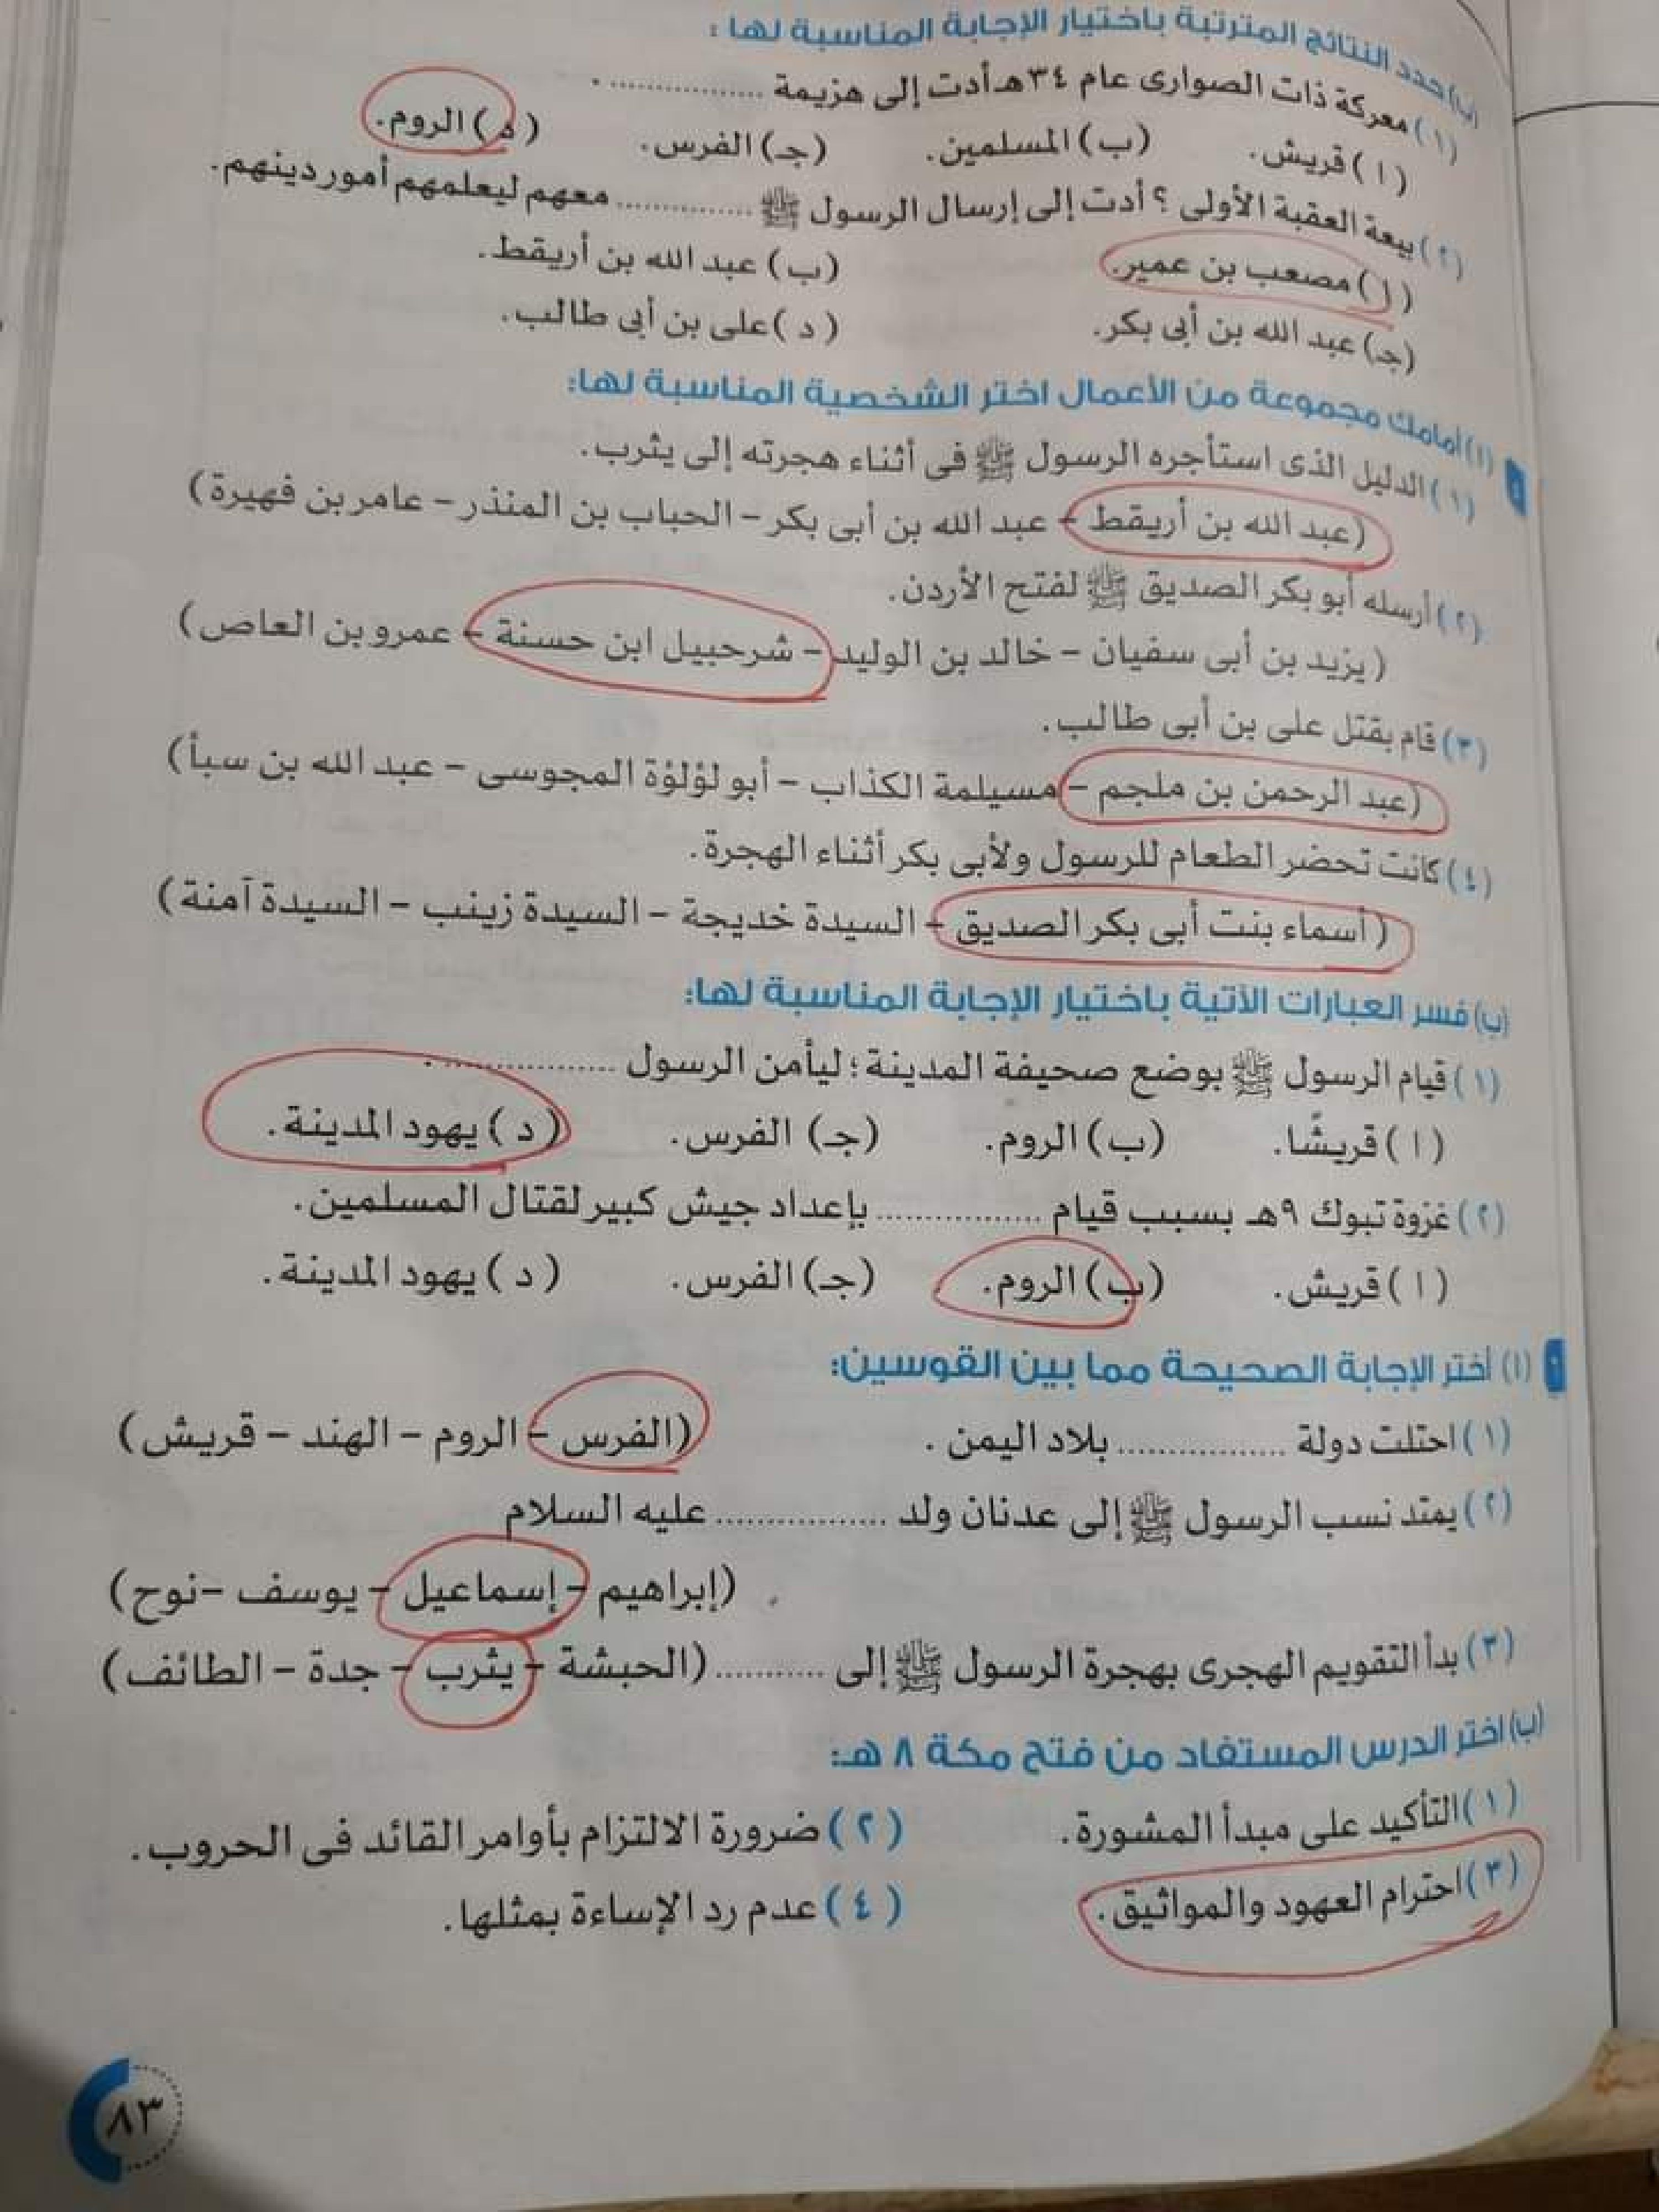 (ب) حدد النتائج المترتبة باختيار الإجابة المناسبة لها :
(١) معركة ذات الصوارى عام ٣٤ هـ أدت إلى هزيمة ................ .
(١) قريش. (ب) المسلمين. (جـ) الفرس. (د) الروم.
(٢) بيعة العقبة الأولى ؟ أدت إلى إرسال الرسول ﷺ .............. معهم ليعلمهم أمور دينهم.
(١) مصعب بن عمير. (ب) عبد الله بن أريقط.
(جـ) عبد الله بن أبى بكر. (د) على بن أبى طالب.
٥ (١) أمامك مجموعة من الأعمال اختر الشخصية المناسبة لها:
(١) الدليل الذى استأجره الرسول ﷺ فى أثناء هجرته إلى يثرب.
(عبد الله بن أريقط - عبد الله بن أبى بكر - الحباب بن المنذر - عامر بن فهيرة)
(٢) أرسله أبو بكر الصديق ﷺ لفتح الأردن.
(يزيد بن أبى سفيان - خالد بن الوليد - شرحبيل ابن حسنة - عمرو بن العاص)
(٣) قام بقتل على بن أبى طالب.
(عبد الرحمن بن ملجم - مسيلمة الكذاب - أبو لؤلؤة المجوسى - عبد الله بن سبأ)
(٤) كانت تحضر الطعام للرسول ولأبى بكر أثناء الهجرة.
(أسماء بنت أبى بكر الصديق - السيدة خديجة - السيدة زينب - السيدة آمنة)
(ب) فسر العبارات الآتية باختيار الإجابة المناسبة لها:
(١) قيام الرسول ﷺ بوضع صحيفة المدينة ؛ ليأمن الرسول ................ .
(١) قريشًا. (ب) الروم. (جـ) الفرس. (د) يهود المدينة.
(٢) غزوة تبوك ٩هـ بسبب قيام ................ بإعداد جيش كبير لقتال المسلمين.
(١) قريش. (ب) الروم. (جـ) الفرس. (د) يهود المدينة.
٦ (١) أختر الإجابة الصحيحة مما بين القوسين:
(١) احتلت دولة ................ بلاد اليمن . (الفرس - الروم - الهند - قريش)
(٢) يمتد نسب الرسول ﷺ إلى عدنان ولد ................ عليه السلام
(إبراهيم - إسماعيل - يوسف - نوح)
(٣) بدأ التقويم الهجرى بهجرة الرسول ﷺ إلى ........... (الحبشة - يثرب - جدة - الطائف)
(ب) اختر الدرس المستفاد من فتح مكة ٨ هـ:
(١) التأكيد على مبدأ المشورة. (٢) ضرورة الالتزام بأوامر القائد فى الحروب.
(٣) احترام العهود والمواثيق. (٤) عدم رد الإساءة بمثلها.
٨٣